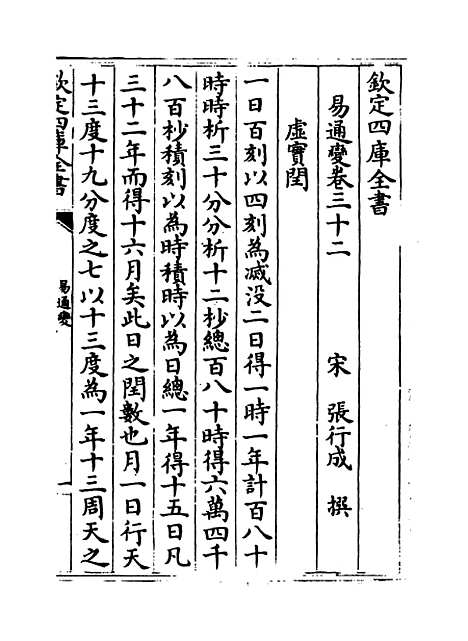 欽定四庫全書
易通變卷三十二　　宋　張行成　撰
虛實閏
一日百刻以四刻為滅没二日得一時一年計百八十
時時析三十分分析十二杪總百八十時得六萬四千
八百杪積刻以為時積時以為日總一年得十五日凡
三十二年而得十六月矣此日之閏數也月一日行天
十三度十九分度之七以十三度為一年十三周天之
欽定四庫全書
易通變